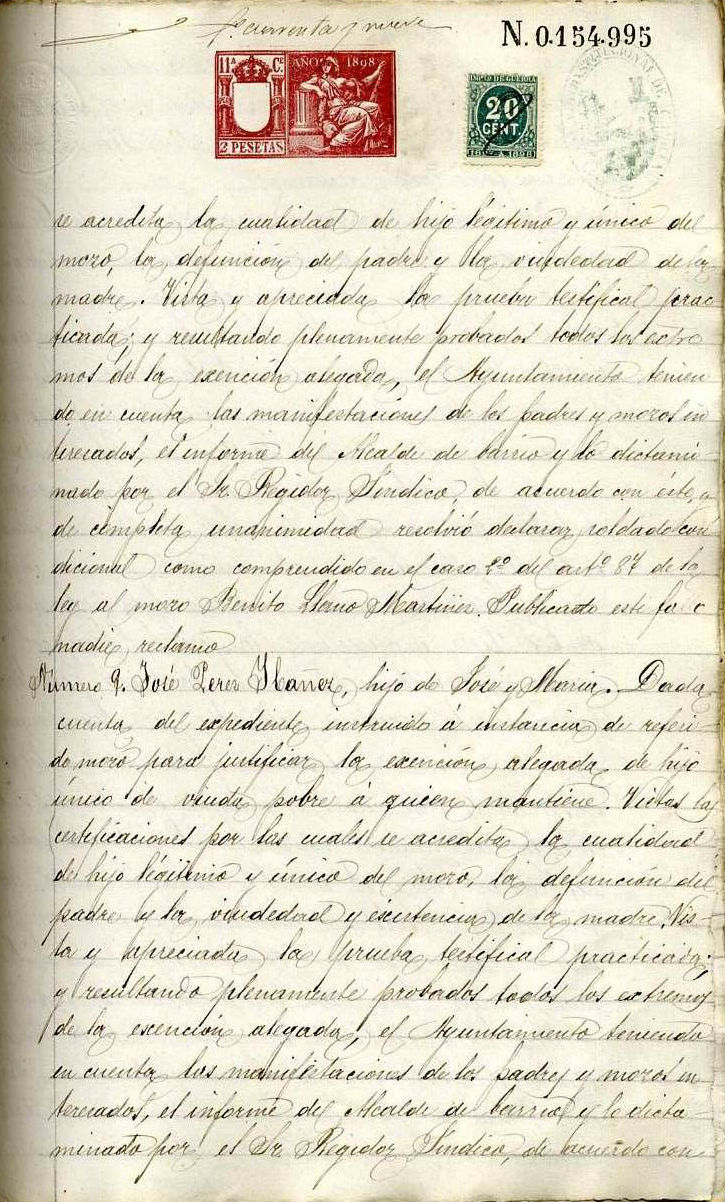 cuarenta y nueve
N. 0.154.995
11ª Cᴱ AÑO 1898
2 PESETAS
IMPTO DE GUERRA
20
CENT.
1897 A 1898
se acredita la cualidad de hijo legítimo y único del
mozo, la defunción del padre y la viudedad de la
madre. Vista y apreciada la prueba testifical prac
ticada; y resultando plenamente probados todos los extre
mos de la exención alegada, el Ayuntamiento tenien
do en cuenta las manifestaciones de los padres y mozos in
teresados, el informe del Alcalde de barrio y lo dictami
nado por el Sr. Regidor Síndico, de acuerdo con éste, y
de completa unanimidad resolvió declarar soldado con
dicional como comprendido en el caso 2º del artº 87 de la
ley al mozo Benito Llano Martinez. Publicado este fallo
nadie reclamó
Número 9. José Perez Ibañez, hijo de José y Maria. Dada
cuenta del expediente instruido á instancia de referi
do mozo para justificar la exención alegada de hijo
único de viuda pobre á quien mantiene. Vistas las
certificaciones por las cuales se acredita la cualidad
de hijo legítimo y único del mozo, la defunción del
padre y la viudedad y existencia de la madre. Vis-
ta y apreciada la prueba testifical practicada;
y resultando plenamente probados todos los extremos
de la exención alegada, el Ayuntamiento teniendo
en cuenta las manifestaciones de los padres y mozos in
teresados, el informe del Alcalde de barrio y lo dicta
minado por el Sr. Regidor Síndico, de acuerdo con